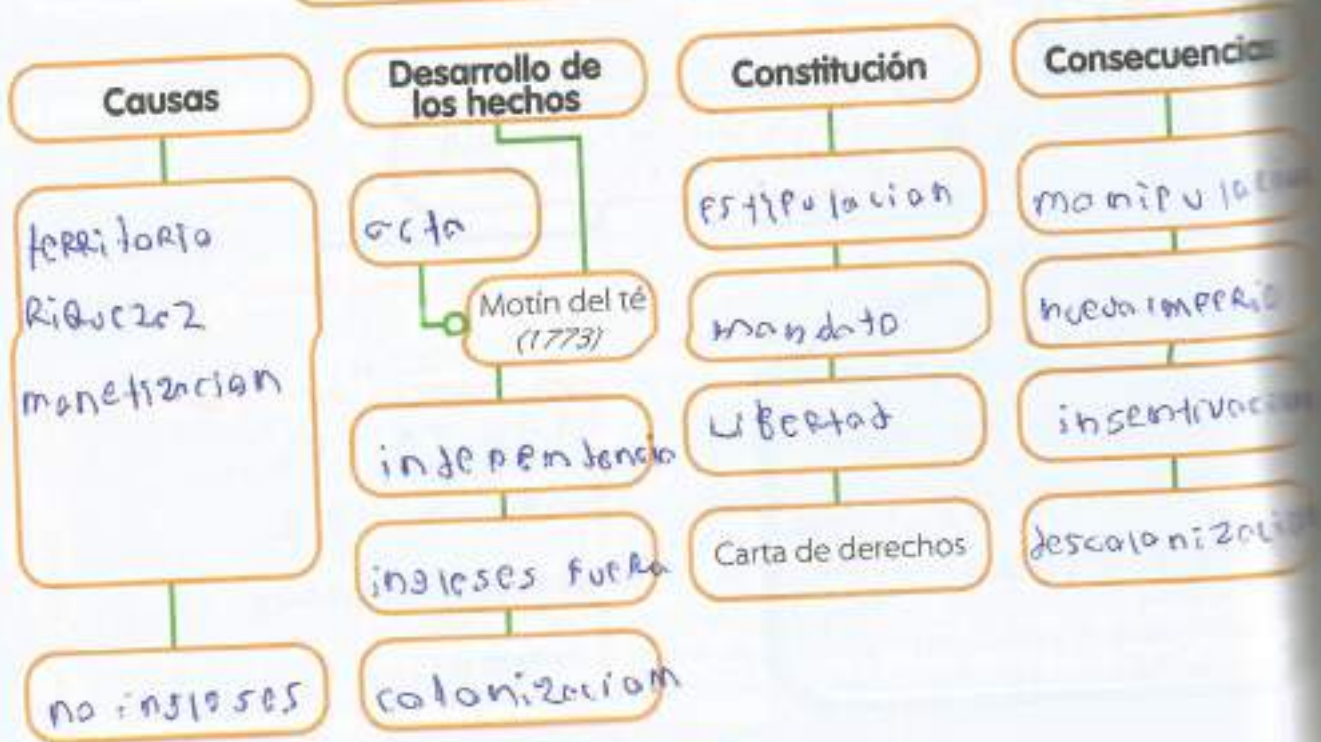 Causas
territorio
Riquezez
monetizacion
no ingleses
Desarrollo de
los hechos
acta
Motín del té
(1773)
independencia
ingleses fuera
colonizaciom
Constitución
estipulacion
mandato
Libertad
Carta de derechos
Consecuencias
nuevo imperio